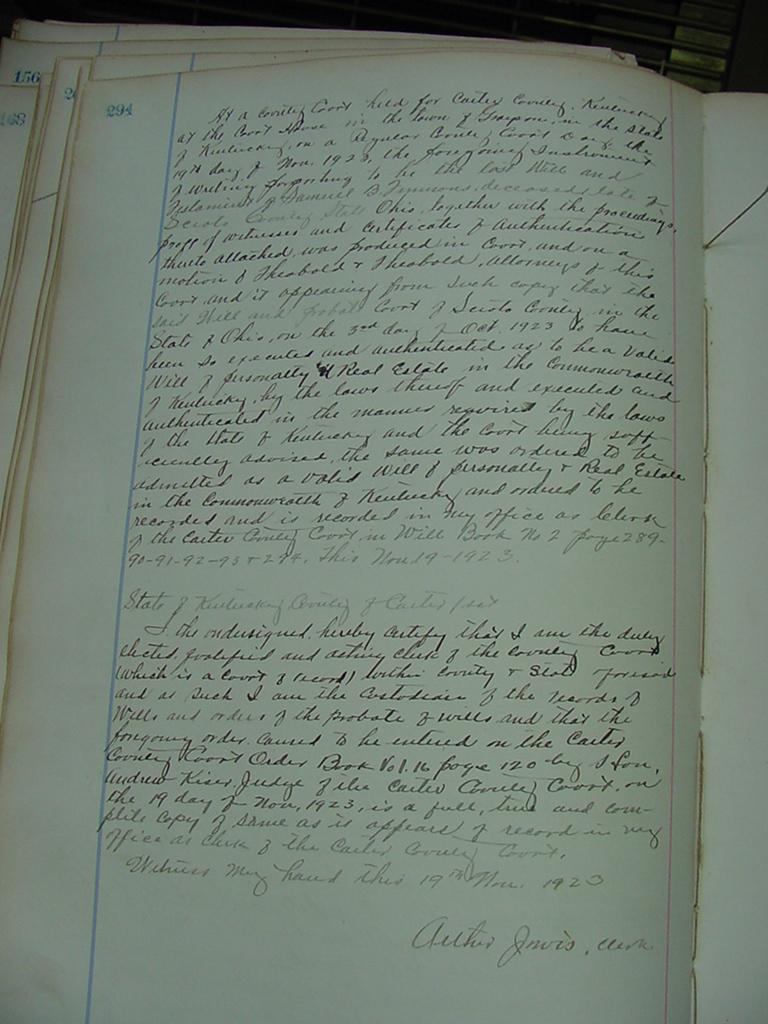 156
2
168
294
At a County Court held for Carter County, Kentucky
at the Court House in the town of Grayson, in the State
of Kentucky, on a Regular County Court Day, the
19th day of Nov. 1923, the foregoing Instrument
of writing purporting to be the last Will and
Testament of Samuel B. Timmons, deceased, late of
Scioto County State Ohio, together with the proceedings,
proff of witnesses and Certificates of Authentication
thereto attached, was produced in Court, and on a
motion of Theobald & Theobald, attorneys of this
Court, and it appearing from such copy that the
said Will and probate Court of Scioto County, in the
State of Ohio, on the 3rd day of Oct. 1923 to have
been so executed and authenticated as to be a valid
Will of personalty & Real Estate in the Commonwealth
of Kentucky, by the laws thereof and executed and
authenticated in the manner required by the laws
of the State of Kentucky and the Court being suff-
iciently advised, the same was ordered to be
admitted as a valid Will of personalty & Real Estate
in the Commonwealth of Kentucky and ordered to be
recorded and is recorded in my office as Clerk
of the Carter County Court, in Will Book No 2 page 289-
90-91-92-93 & 294. This Nov 19-1923.
State of Kentucky County of Carter / sct
I the undersigned, hereby certify that I am the duly
elected, qualified and acting clerk of the County Court
(which is a court of record) within County & State aforesaid
and as such I am the Custodian of the records of
Wills and orders of the probate of wills and that the
foregoing order caused to be entered on the Carter
County Court Order Book Vol. 16 page 120 by Hon.
Andrew Kiser, Judge of the Carter County Court, on
the 19 day of Nov, 1923, is a full, true and com-
plete copy of same as is appears of record in my
office as Clerk of the Carter County Court.
Witness my hand this 19th Nov. 1923
Jarvis, Clerk